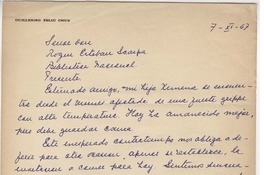 GUILLERMO FELIU CRUZ
7-XI-67
Señor don
Roque Esteban Scarpa
Biblioteca Nacional
Presente
Estimado amigo, - mi hija Ximena se encuen
tra desde el lunes afectada de una fuerte grippe
con alta temperatura. Hoy ha amanecido mejor,
pero debe guardar cama.
Este inesperado contratiempo nos obliga a de
jar para otra ocasión, apenas se restablezca, la
invitación a comer para hoy. Sentimos